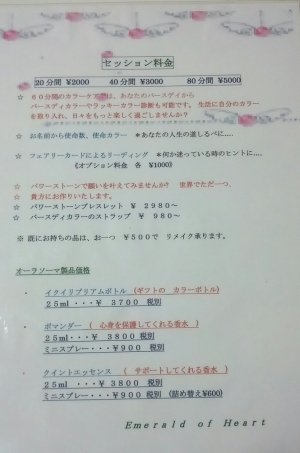 セッション料金
20分間 ¥2000 40分間 ¥3000 80分間 ¥5000
☆ 60分間のカラーケアは、あなたのバースデイから
バースディカラーやラッキーカラー診断も可能です。 生活に自分のカラー
を取り入れ、日々をもっと楽しく過ごしませんか？
☆ お名前から使命数、使命カラー ＊あなたの人生の道しるべに....
☆ フェアリーカードによるリーディング ＊何か迷っている時のヒントに....
《オプション料金 各 ¥1000》
☆ パワーストーンで願いを叶えてみませんか？ 世界でただ一つ、
☆ 貴方にお作りいたします。
☆ パワーストーンブレスレット ¥2980～
☆ バースディカラーのストラップ ¥980～
※ 既にお持ちの品は、お一つ ¥500で リメイク承ります。
オーラソーマ製品価格
・ イクイリブリアムボトル （ギフトの カラーボトル）
25ml ・・・¥ 3700 税別
・ ポマンダー （ 心身を保護してくれる香水 ）
25ml ・・・¥ 3800 税別
ミニスプレー・・・¥900 税別
・ クイントエッセンス （ サポートしてくれる香水 ）
25ml ・・・¥ 3800 税別
ミニスプレー・・・¥900 税別 (詰め替え¥600)
Emerald of Heart